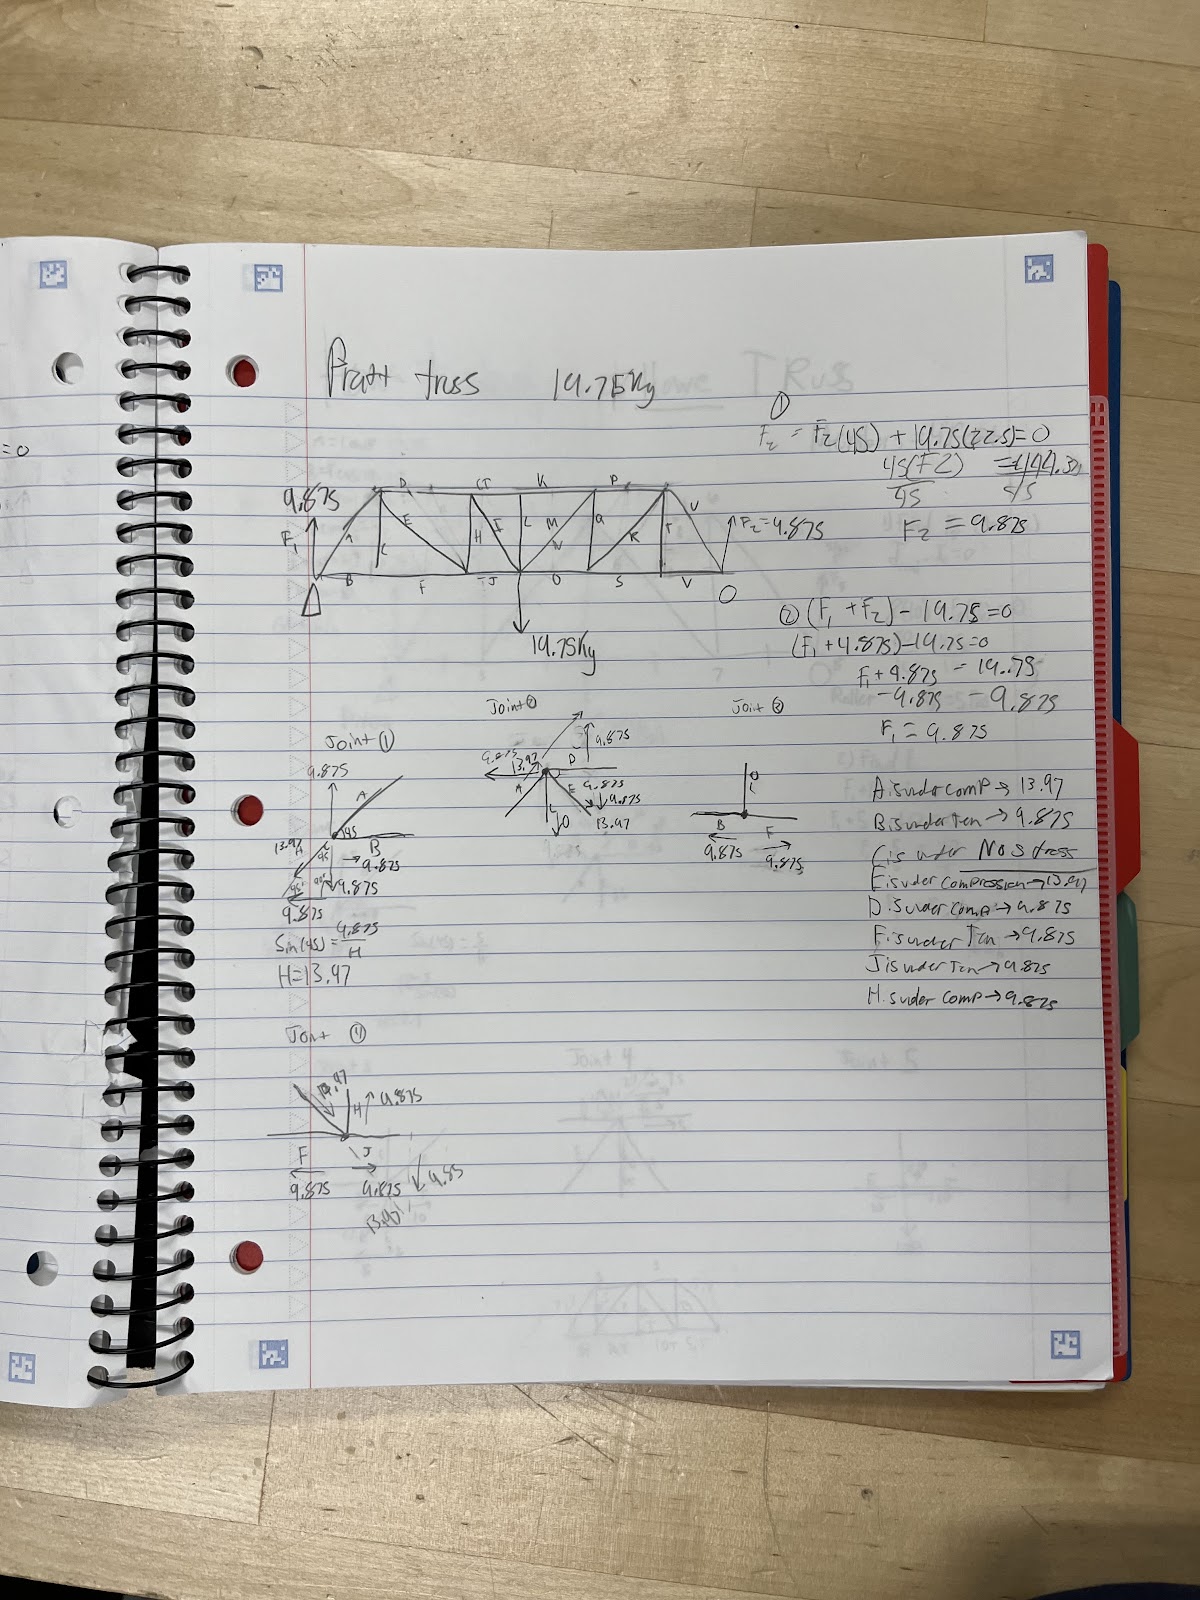 =0
Pratt truss 19.75Kg
①
F₂ = F₂(45) + 19.75(22.5)=0
45(F2) =444.3
45 45
F₂ = 9.875
9.875
F₁
A B C D E F H I J K L M N O P Q R S T U V
F₂=9.875
19.75Kg
② (F₁ + F₂) - 19.75=0
(F₁+9.875)-19.75=0
F₁+9.875 = 19.75
-9.875 -9.875
F₁ = 9.875
Joint ①
9.875
A
45
B
→9.875
13.97
9.875
9.875
Sin(45)= 9.875/H
H=13.97
Joint ②
9.875
9.875
13.97
D
A
E 9.875
9.875
0
13.97
Joint ③
0
B F
9.875 9.875
A is under comP → 13.97
B is under Ten → 9.875
C is under No Stress
E is under compression → 13.97
D is under comp → 9.875
F is under Ten → 9.875
J is under Ten → 9.875
H is under comp → 9.875
Joint ④
13.97
H 9.875
F J
9.875 9.875
13.97